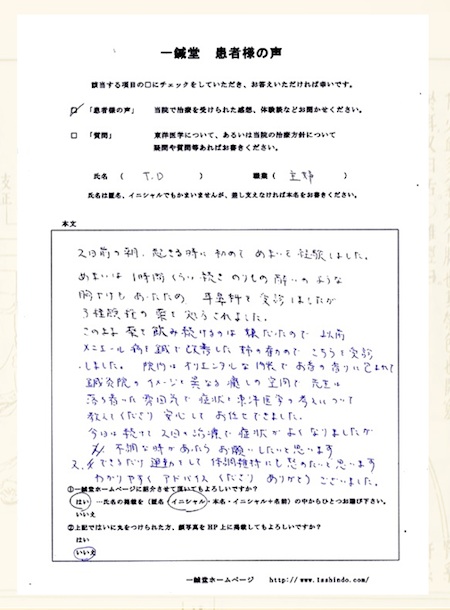 一鍼堂 患者様の声
該当する項目の□にチェックをしていただき、お答えいただければ幸いです。
「患者様の声」 当院で治療を受けられた感想、体験談などお聞かせください。
□ 「質問」 東洋医学について、あるいは当院の治療方針について
疑問や質問等あればお書きください。
氏名 ( T.D ) 職業 ( 主婦 )
氏名は匿名、イニシャルでもかまいませんが、差し支えなければ本名をお書きください。
本文
2日前の朝、起きる時に初めて めまいを経験しました。
めまいは 1時間くらい続き のりもの酔いのような
胸やけも あったため 耳鼻科を受診しましたが
3種類程の薬を 処方されました。
このまま薬を飲み続けるのは 嫌だったので 以前
メニエール病を鍼で改善した 姉の勧めで こちらを受診
しました。 院内は オリエンタルな内装で お香の香りに包まれて
鍼灸院のイメージと異なる 癒しの空間で 先生は
落ち着いた雰囲気で 症状と東洋医学の考えについて
教えてくださり 安心して お任せできました。
今日は続けて 2回の治療で 症状が よくなりましたが
又、不調な時があったら お願いしたいと思います
又、できるだけ 運動をして 体調維持にも努めたいと思います
わかりやすく アドバイスくださり ありがとうございました。
①一鍼堂ホームページに紹介させて頂いてもよろしいですか?
はい …氏名の掲載を(匿名・イニシャル・本名・イニシャル+名前)の中からひとつお選び下さい。
いいえ
②上記ではいに丸をつけられた方、顔写真をHP上に掲載してもよろしいですか?
はい
いいえ
一鍼堂ホームページ http://www.isshindo.com/